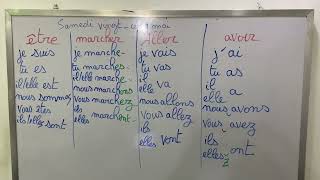 Samedi vingt- mai
être
je suis
tu es
il/elle est
nous sommes
vous êtes
ils/elles sont
marcher
je marche-
tu marches-
il/elle marche-
nous marchons
vous marchez
ils
elles marchent-
Aller
je vais
tu vas
il
elle va
nous allons
vous allez
ils
elles vont
avoir
j'ai
tu as
il
elle a
nous avons
vous avez
ils
elles ont
z